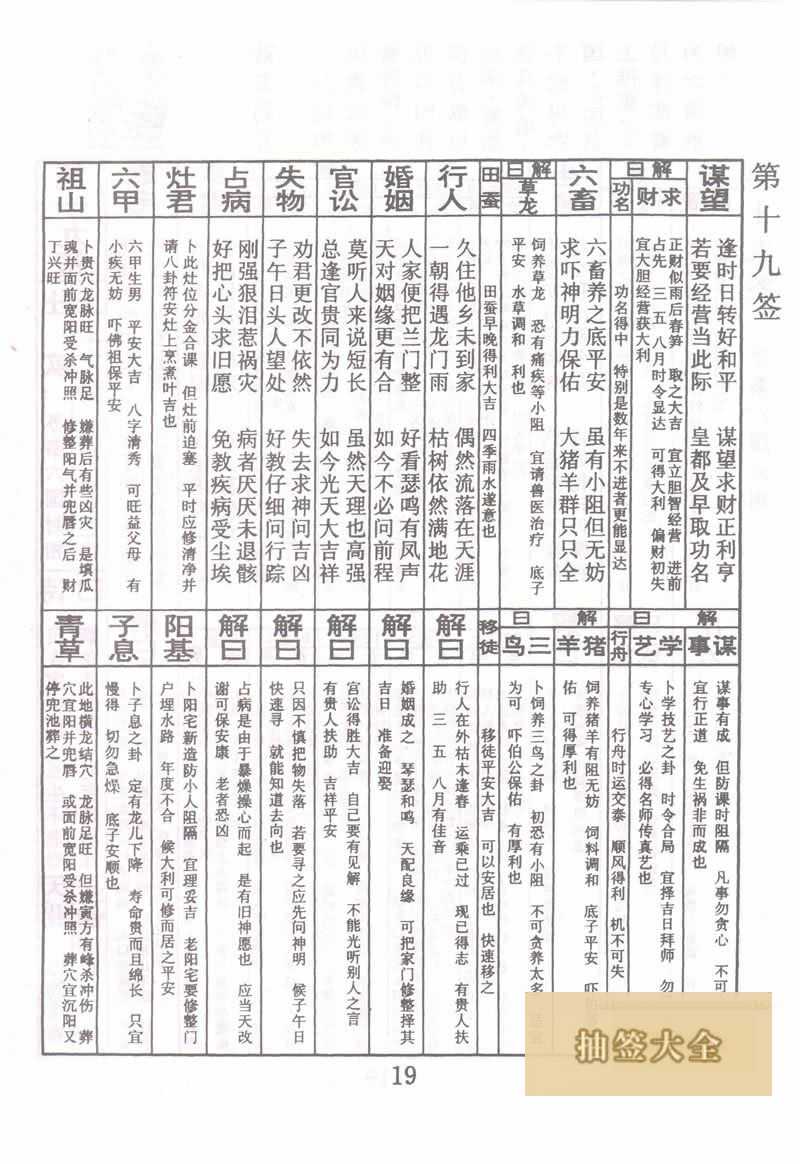 第十九签
谋望
逢时日转好和平 谋望求财正利亨
若要经营当此际 皇都及早取功名
解曰
求财
正财似雨后春笋 取之大吉 宜立胆智经营 进前
占先 三 五 八月时令显达 可得大利 偏财初失
宜大胆经营获大利
功名
功名得中 特别是数年来不进者更能显达
六畜
六畜养之底平安 虽有小阻但无妨
求吓神明力保佑 大猪羊群只只全
解曰
草龙
饲养草龙 恐有痛疾等小阻 宜请兽医治疗 底子
平安 水草调和 利也
田蚕
田蚕早晚得利大吉 四季雨水遂意也
行人
久住他乡未到家 偶然流落在天涯
一朝得遇龙门雨 枯树依然满地花
婚姻
人家便把兰门整 好看瑟鸣有凤声
天对姻缘更有合 如今不必问前程
官讼
莫听人来说短长 虽然天理也高强
总逢官贵同为力 如今光天大吉祥
失物
劝君更改不依然 失去求神问吉凶
子午日头人望处 好教仔细问行踪
占病
刚强狠泪惹祸灾 病者厌厌未退骸
好把心头求旧愿 免教疾病受尘埃
灶君
卜此灶位分金合课 但灶前迫塞 平时应修清净并
请八卦符安灶上烹煮叶吉也
六甲
六甲生男 平安大吉 八字清秀 可旺益父母 有
小疾无妨 吓佛祖保平安
祖山
卜贵穴龙脉旺 气脉足 嫌葬后有些凶灾 是填瓜
魂并面前宽阳受杀冲照 修整阳气并兜唇之后 财
丁兴旺
解曰
谋事
谋事有成 但防课时阻隔 凡事勿贪心 不可
宜行正道 免生祸非而成也
学艺
卜学技艺之卦 时令合局 宜择吉日拜师 勿
专心学习 必得名师传真艺也
行舟
行舟时运交泰 顺风得利 机不可失
解曰
猪羊
饲养猪羊有阻无妨 饲料调和 底子平安 吓
佑 可得厚利也
三鸟
卜饲养三鸟之卦 初恐有小阻 不可贪养太多
为可 吓伯公保佑 有厚利也
移徒
移徒平安大吉 可以安居也 快速移之
解曰
行人在外枯木逢春 运乘已过 现已得志 有贵人扶
助 三 五 八月有佳音
解曰
婚姻成之 琴瑟和鸣 天配良缘 可把家门修整择其
吉日 准备迎娶
解曰
官讼得胜大吉 自己要有见解 不能光听别人之言
有贵人扶助 吉祥平安
解曰
只因不慎把物失落 若要寻之应先问神明 候子午日
快速寻 就能知道去向也
解曰
占病是由于暴燥操心而起 是有旧神愿也 应当天改
谢可保安康 老者恐凶
阳基
卜阳宅新造防小人阻隔 宜理妥吉 老阳宅要修整门
户埕水路 年度不合 候大利可修而居之平安
子息
卜子息之卦 定有龙儿下降 寿命贵而且绵长 只宜
慢得 切勿急燥 底子安顺也
青草
此地横龙结穴 龙脉足旺 但嫌寅方有峰杀冲伤 葬
穴宜阳并兜唇 或面前宽阳受杀冲照 葬穴宜沉阳又
停兜池葬之
19
抽签大全